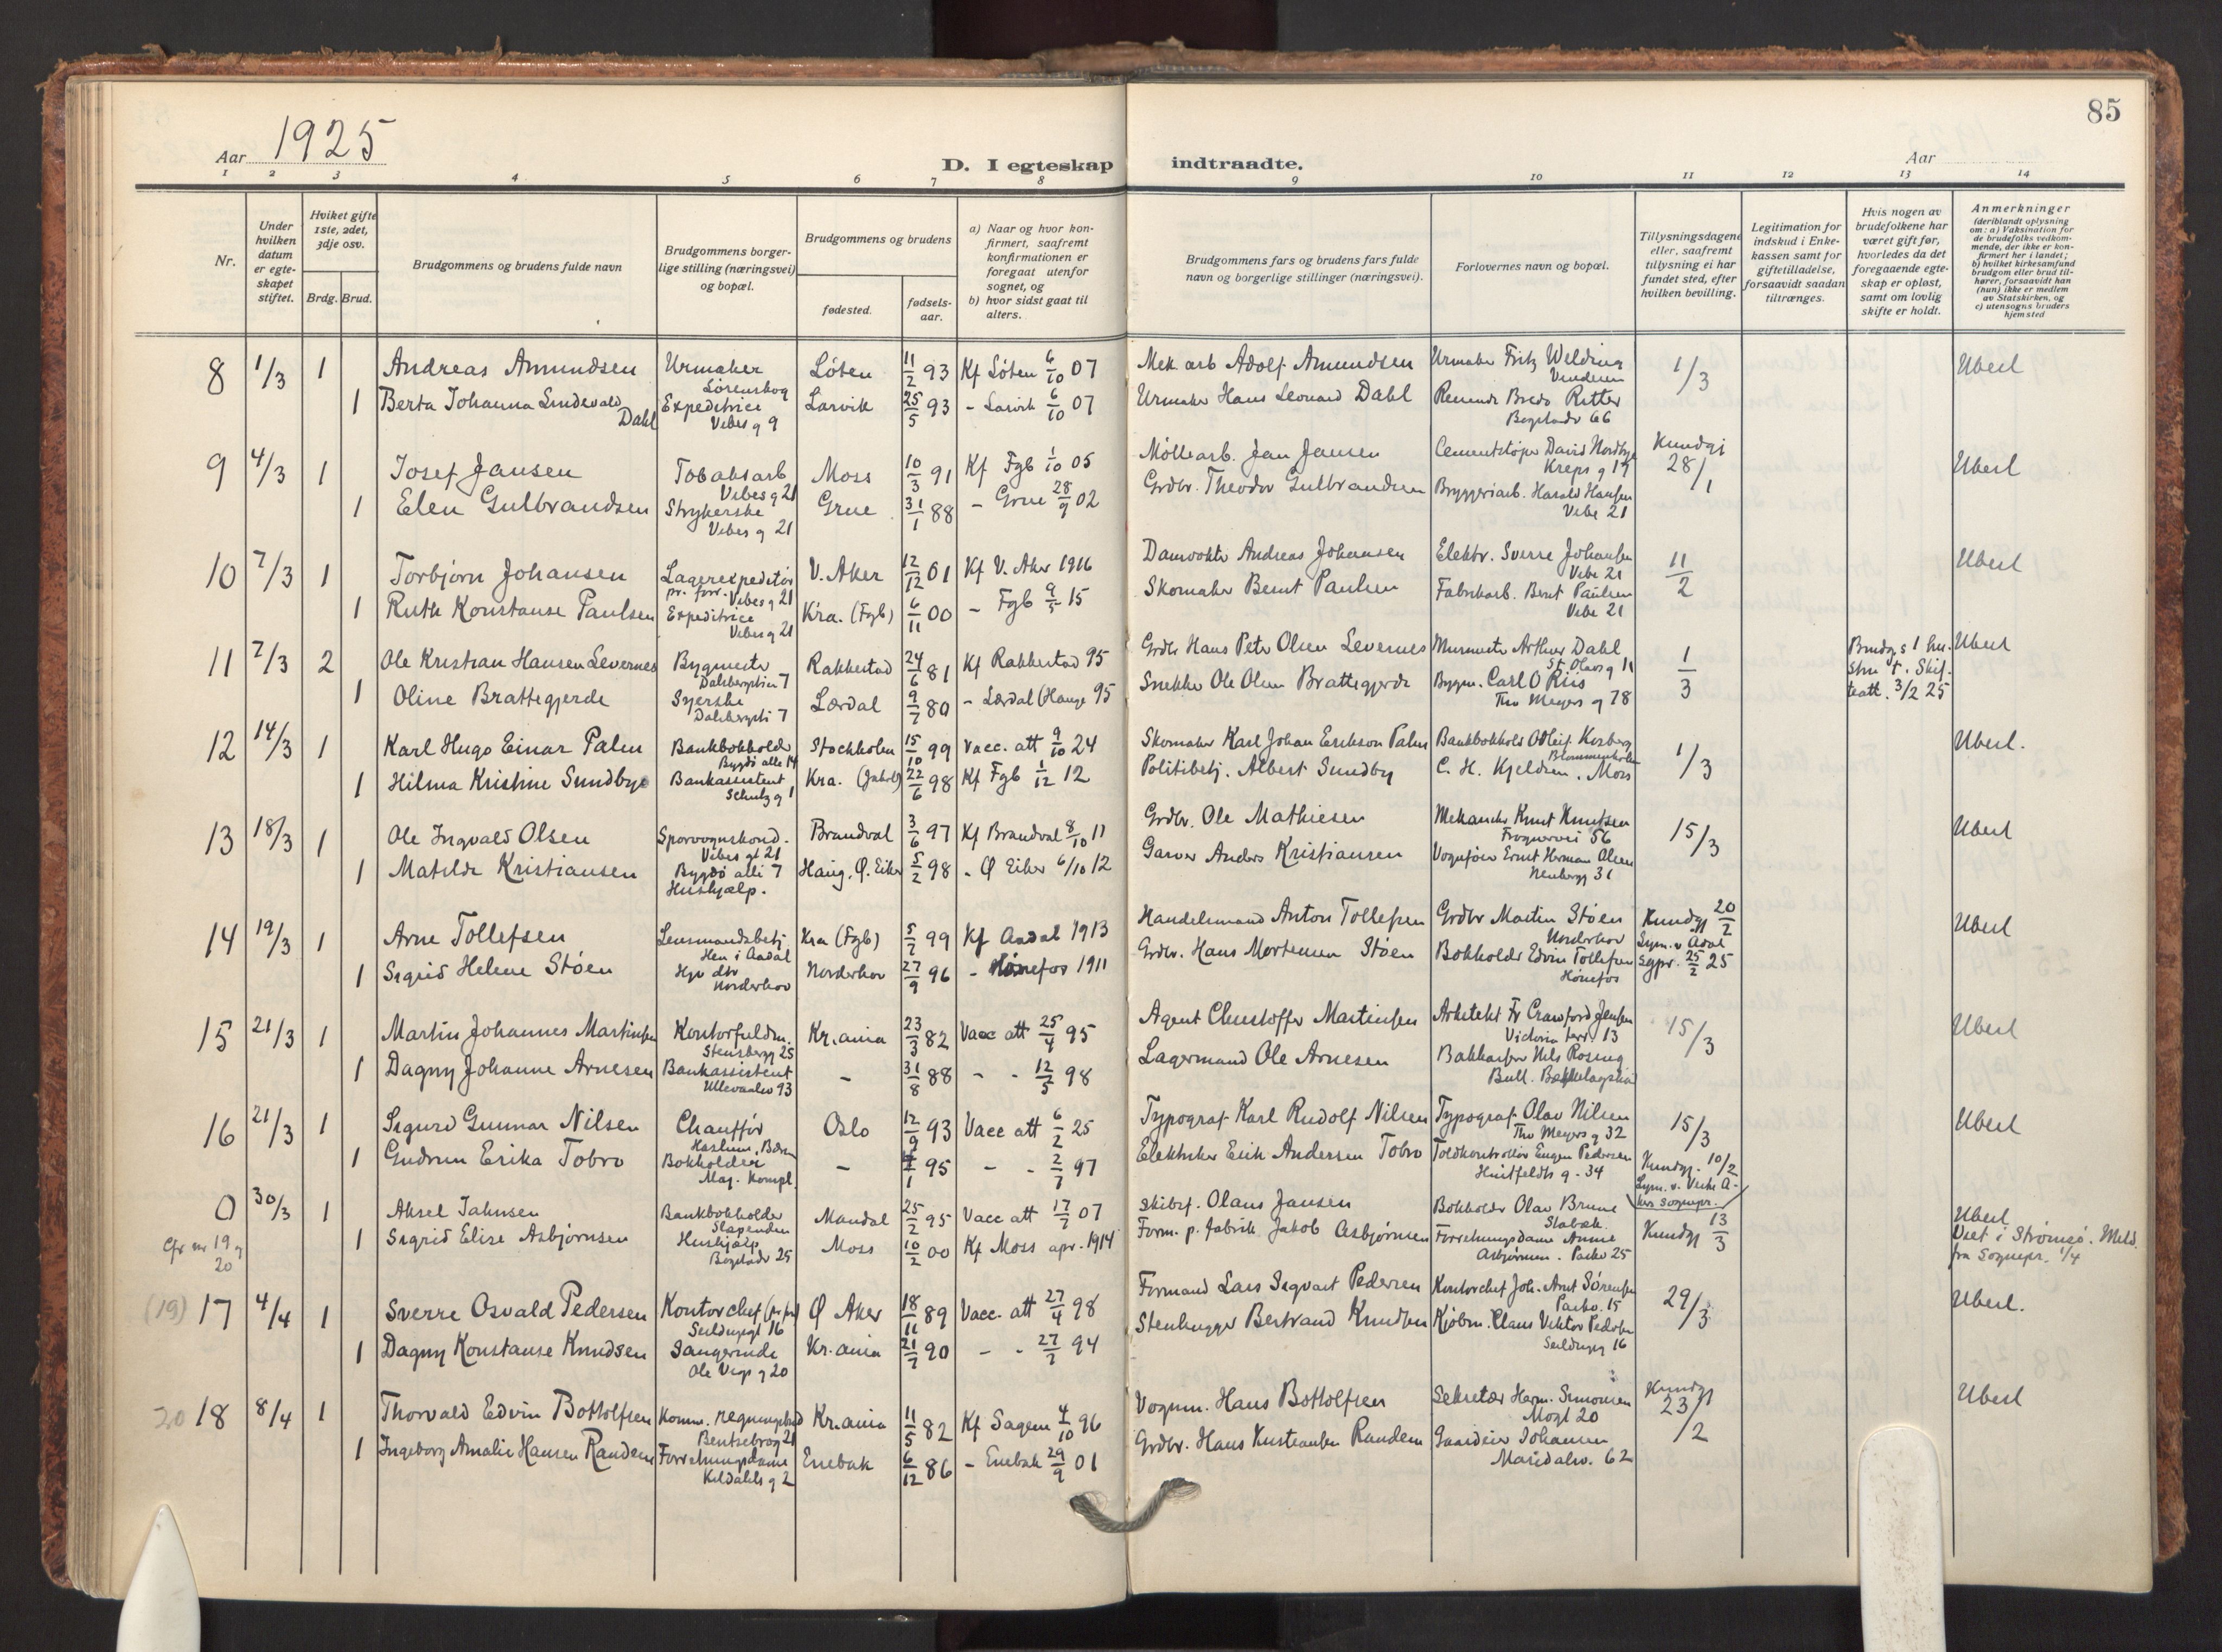 85
Aar 1925
D. I egteskap indtraadte.
Aar
1 2 3 4 5 6 7 8 9 10 11 12 13 14
Nr.
Under hvilken datum er egteskapet stiftet.
Hviket gifte 1ste, 2det, 3dje osv.
Brdg. Brud.
Brudgommens og brudens fulde navn
Brudgommens borgerlige stilling (næringsvei) og bopæl.
Brudgommens og brudens
fødested.
fødselsaar.
a) Naar og hvor konfirmert, saafremt konfirmationen er foregaat utenfor sognet, og
b) hvor sidst gaat til alters.
Brudgommens fars og brudens fars fulde navn og borgerlige stillinger (næringsvei).
Forlovernes navn og bopæl.
Tillysningsdagene eller, saafremt tillysning ei har fundet sted, efter hvilken bevilling.
Legitimation for indskud i Enkekassen samt for giftetilladelse, forsaavidt saadan tiltrænges.
Hvis nogen av brudefolkene har været gift før, hvorledes da det foregaaende egteskap er opløst, samt om lovlig skifte er holdt.
Anmerkninger
(deriblandt oplysning om: a) Vaksination for de brudefolks vedkommende, der ikke er konfirmert her i landet; b) hvilket kirkesamfund brudgom eller brud tilhører, forsaavidt han (hun) ikke er medlem av Statskirken, og c) utensogns bruders hjemsted
8 1/3 1 Andreas Amundsen Urmaker Løten 11/2 93 Kf Løten 6/10 07 Mek. arb Adolf Amundsen Urmaker Fritz Welding 1/3 Uberl
Sørenskog Vinderen
1 Berta Johanna Lindevald Dahl Expeditrice Larvik 25/5 93 - Larvik 6/10 07 Urmaker Hans Leonard Dahl Bredo Ritter
Vibes g 9 Bogstadv 66
9 4/3 1 Josef Jansen Tobaksarb Moss 10/3 91 Kf Fgb 1/10 05 Møllearb. Jan Jansen Cementstøper David Nordbye Kundgj 28/1 Uberl
Vibes g 21
1 Elen Gulbrandsen Strykerske Grue 31/1 88 - Grue 28/9 02 Grdbr. Theodor Gulbrandsen Bryggeriarb. Harald Hansen
Vibes g 21 Vibe 21
10 7/3 1 Torbjørn Johansen Lagerexpeditør V. Aker 12/12 01 Kf V. Aker 1916 Andreas Johansen Elektr. Sverre Johansen 11/2 Uberl
pr. forr. Vibes g 21 Vibe 21
1 Ruth Konstanse Paulsen Expeditrice Kra. (Fgb) 6/11 00 - Fgb 9/5 15 Skomaker Bernt Paulsen Fabrikarb. Bernt Paulsen
Vibes g 21 Vibe 21
11 7/3 2 Ole Kristian Hansen Levernes Bygmester Rakkestad 24/6 81 Kf Rakkestad 95 Grdbr Hans Peter Olsen Levernes Murmester Arthur Dahl 1/3 Brudg.s 1 hustru †. Skifteatt. 3/2 25 Uberl
Dalsbergstien 7 St. Olavs g 11
1 Oline Brattegjerde Syerske Lærdal 9/7 80 - Lærdal (Hauge 95 Snekker Ole Olsen Brattegjerde Bygm. Carl O Riis
Dalsbergsti 7 Thv Meyers g 78
12 14/3 1 Karl Hugo Einar Palm Bankbokholder Stockholm 15/10 99 Vacc. att 9/10 24 Skomaker Karl Johan Erikson Palm Bankbokhold Odleif Korberg 1/3 Uberl.
Bygdø alle 14 Blommenholm
1 Hilma Kristine Sundbye Bankassistent Kra. (Jakob) 22/6 98 Kf Fgb 1/12 12 Politibetj. Albert Sundby C. H. Kjeldsen. Moss
Schultz g 1
13 18/3 1 Ole Ingvald Olsen Sporvognskond. Brandval 3/6 97 Kf Brandval 8/10 11 Grdbr. Ole Mathiesen Mekaniker Knut Knutsen 15/3 Uberl
Vibes gt 21 Frognervei 56
1 Matilde Kristiansen Bygdø alle 7 Haug, Ø. Eiker 5/2 98 - Ø Eiker 6/10 12 Garver Anders Kristiansen Vognfører Ernst Herman Olsen
Hushjælp. Neubergg 31
14 19/3 1 Arne Tollefsen Lensmandsbetj Kra (Fgb) 5/7 99 Kf Aadal 1913 Handelsmand Anton Tollefsen Grdbr Martin Støen Kundgj 20/2 Uberl
Hen i Aadal Norderhov Sym. v Adal
1 Sigrid Helene Støen Norderhov 27/9 96 - Hønefos 1911 Grdbr. Hans Mortensen Støen Bokholder Edvin Tollefsen Sgpr. 25/2 25
Norderhov Hønefos
15 21/3 1 Martin Johannes Martinsen Kontorfuldm. Kr.ania 23/3 82 Vacc att 25/4 95 Agent Christoffer Martinsen Arkitekt Fr Crawford Jensen 15/3 Uberl
Stensbergg 25 Victoria terr. 13
1 Dagny Johanne Arnesen Bankassistent - 31/8 88 - - 12/5 98 Lagermand Ole Arnesen Bokkasser Nils Rosing
Ullevaalsv 93 Bull. Bækkelagshø
16 21/3 1 Sigurd Gunnar Nilsen Chauffør Oslo 12/9 93 Vacc att 6/2 25 Typograf Karl Rudolf Nilsen Typograf Olav Nilsen 15/3 Uberl
Haslum, Bærum Thv Meyers g 32
1 Gudrun Erika Tobro Bokholder - 95 - - 2/7 97 Elektriker Erik Andersen Tobro Toldkontrollør Eugen Pedersen Kundgj. 10/2
Maj. kompl. Huitfeldts g. 34
0 30/3 1 Aksel Jahnsen Bankbokholder Mandal 25/2 95 Vacc att 17/7 07 Skibsf. Olaus Jansen Bokholder Olav Brune Uberl.
Slependen Stabæk.
cfr nr 19 g 20 1 Sigrid Elise Asbjørnsen Hushjælp Moss 10/2 00 Kf Moss apr. 1914 Form. p. fabrik Jakob Asbjørnsen Forretningsdame Anne Kundgj 13/3 Viet i Strømsø. Meld.
Bogstadv 25 Asbjørnsen. Parkv 25 fra Sognepr. 1/4
(19) 17 4/4 1 Sverre Osvald Pedersen Kontorchef Ø Aker 18/11 89 Vacc. att 27/4 98 Formand Lars Sigvart Pedersen Kontorchef Joh. Arnt Sørensen 29/3 Uberl.
Seilduksgt 16 Parkv. 15
1 Dagny Konstanse Knudsen Sangerinde Kr.ania 21/7 90 - - 27/7 94 Stenhugger Bertrand Knudsen Kjøbm. Claus Viktor Pedersen
Ole Vigs g 20 Seilduksg 16
20 18 8/4 1 Thorvald Edvin Bottolfsen Kr.ania 11/5 82 Kf Sagene 4/10 96 Vognm. Hans Bottolfsen Sekretær Harm. Simonsen Kundgj 23/2 Uberl
Bentsebrog 21
1 Ingeborg Amalie Hansen Randem Forretningsdame Enebak 6/12 86 - Enebak 29/9 01 Grdbr. Hans Kristiansen Randem Gaardeier Johansen
Keldahls g 2 Maridalsv. 62